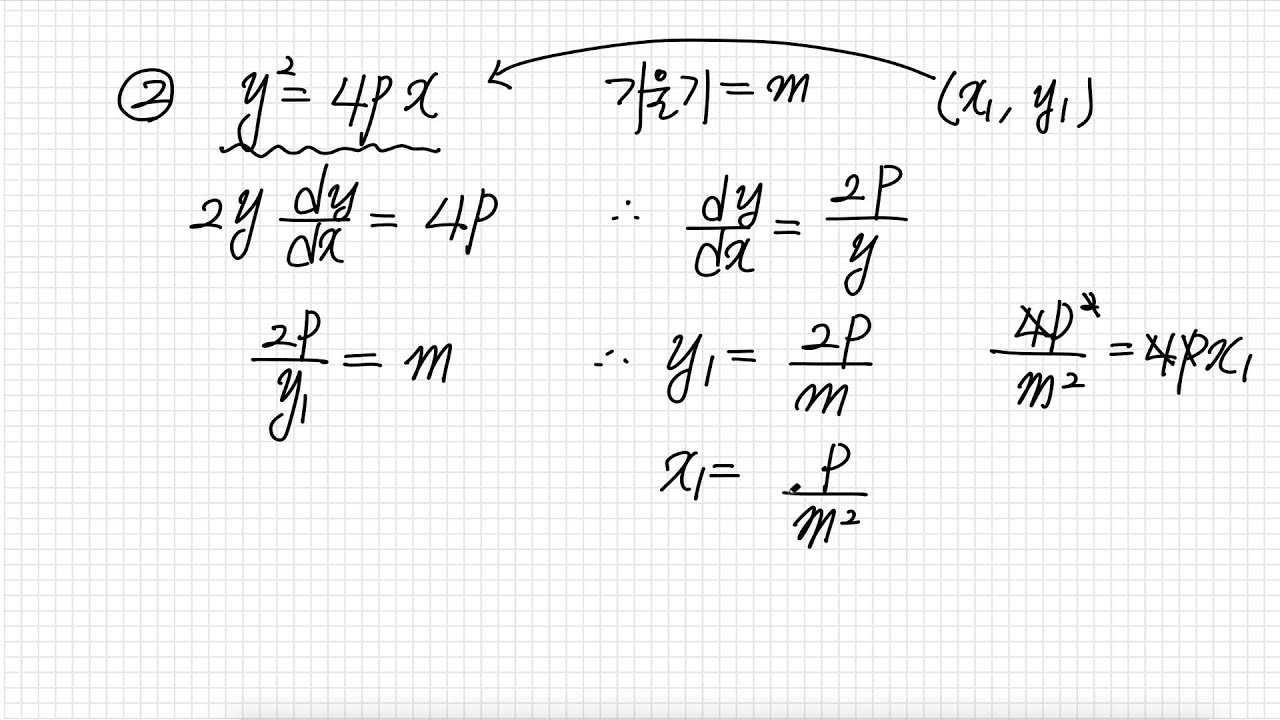 ② y² = 4px 기울기 = m (x₁, y₁)
2y dy/dx = 4p ∴ dy/dx = 2p/y
2p/y₁ = m ∴ y₁ = 2p/m 4p²/m² = 4px₁
x₁ = p/m²